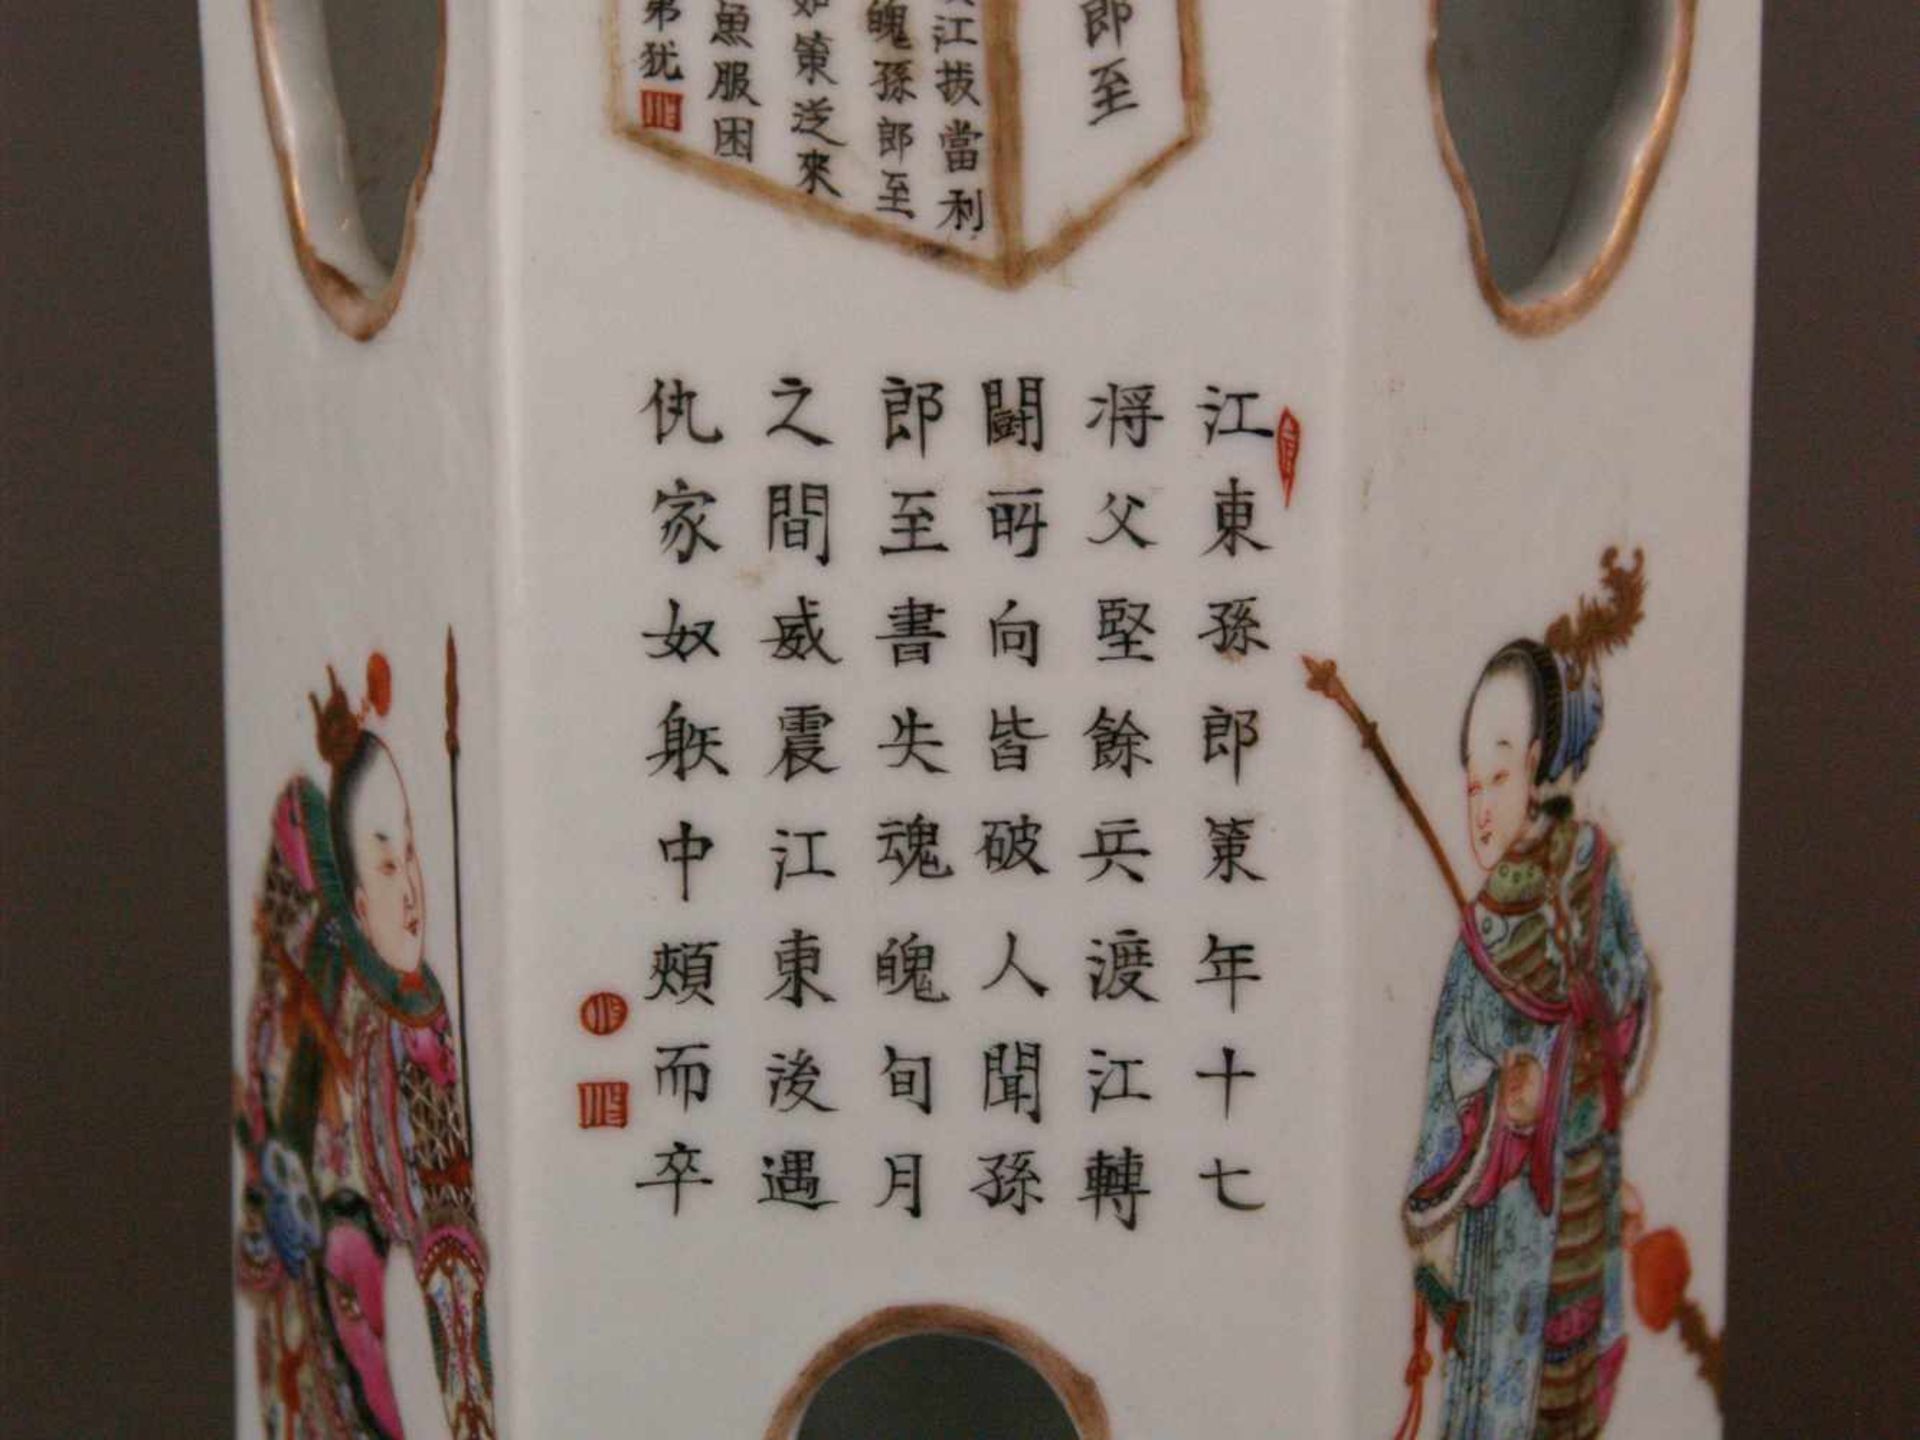 郎至
江拔當利
魄孫郎至
如策送來
魚服困
弟犹
江東孫郎策年十七
将父堅餘兵渡江轉
鬪所向皆破人聞孫
郎至書失魂魄旬月
之間威震江東後遇
仇家奴躲中頰而卒